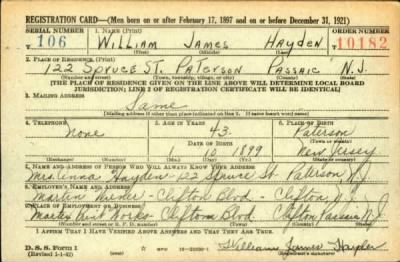 REGISTRATION CARD—(Men born on or after February 17, 1897 and on or before December 31, 1921)
SERIAL NUMBER 1. NAME (Print) ORDER NUMBER
T 106 William James Hayden 10182
(First) (Middle) (Last)
2. PLACE OF RESIDENCE (Print)
122 Spruce St. Paterson Passaic N.J.
(Number and street) (Town, township, village, or city) (County) (State)
[THE PLACE OF RESIDENCE GIVEN ON THE LINE ABOVE WILL DETERMINE LOCAL BOARD
JURISDICTION; LINE 2 OF REGISTRATION CERTIFICATE WILL BE IDENTICAL]
3. MAILING ADDRESS
Same
[Mailing address if other than place indicated on line 2. If same insert word same]
4. TELEPHONE 5. AGE IN YEARS 6. PLACE OF BIRTH
None 43 Paterson
DATE OF BIRTH (Town or county)
1 10 1899 New Jersey
(Exchange) (Number) (Mo.) (Day) (Yr.) (State or country)
7. NAME AND ADDRESS OF PERSON WHO WILL ALWAYS KNOW YOUR ADDRESS
Mrs. Anna Hayden - 122 Spruce St. Paterson N.J.
8. EMPLOYER'S NAME AND ADDRESS
Martin - Clifton Blvd - Clifton, N.J.
9. PLACE OF EMPLOYMENT OR BUSINESS
Works Clifton Blvd. Clifton Passaic N.J.
(Number and street or R. F. D. number) (Town) (County) (State)
I AFFIRM THAT I HAVE VERIFIED ABOVE ANSWERS AND THAT THEY ARE TRUE.
D. S. S. Form 1
(Revised 1-1-42) (over) William James Hayden
(Registrant's signature)